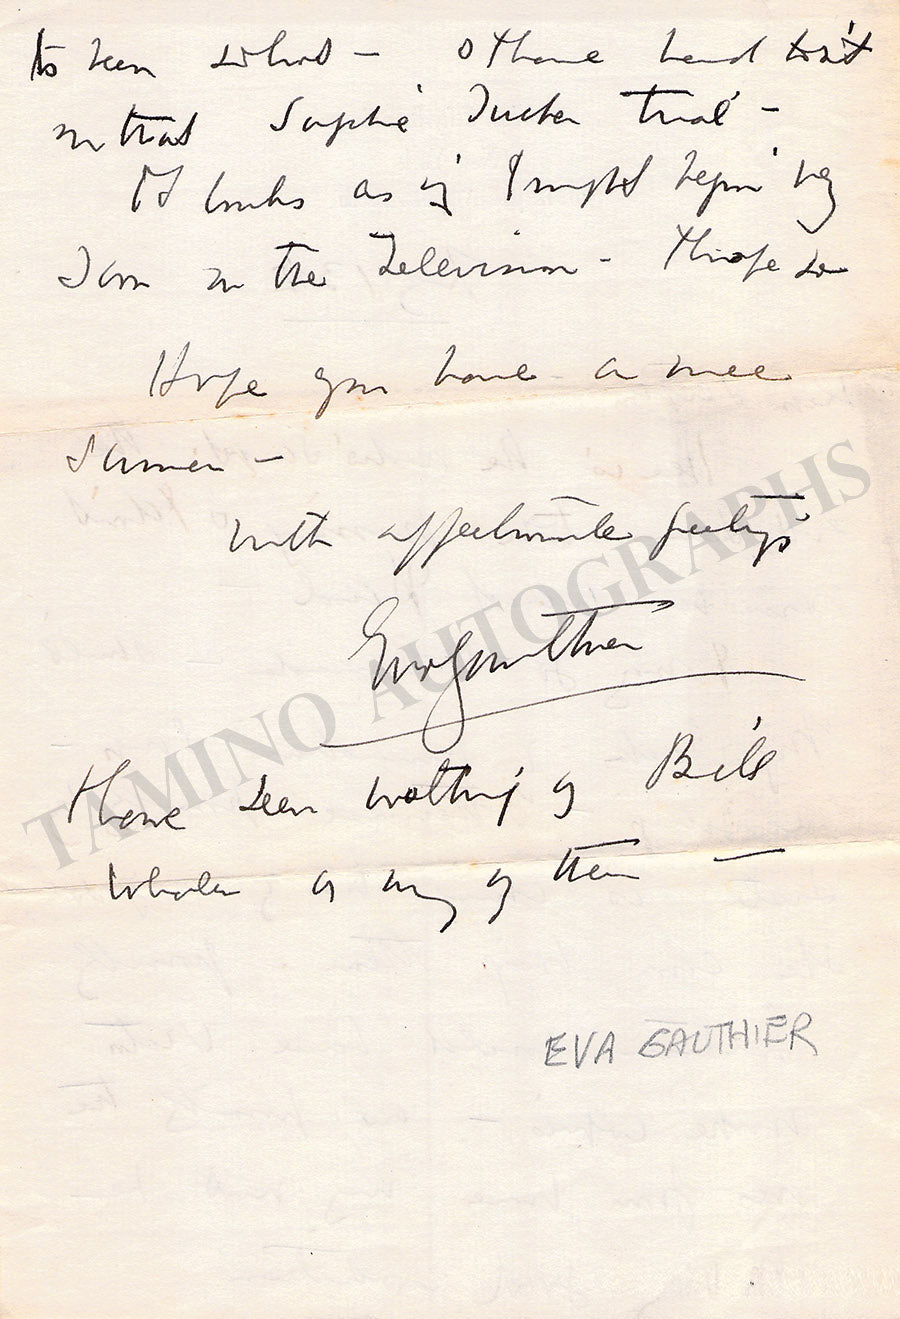 to hear what — I have heard
in that Sophie Tucker trial —
It looks as if I might begin
in the Television — I hope so
Hope you have a nice
Summer —
With affectionate greetings
Eva Gauthier
I have seen nothing of Bill
Whalen or any of them —
EVA GAUTHIER
TAMINO AUTOGRAPHS